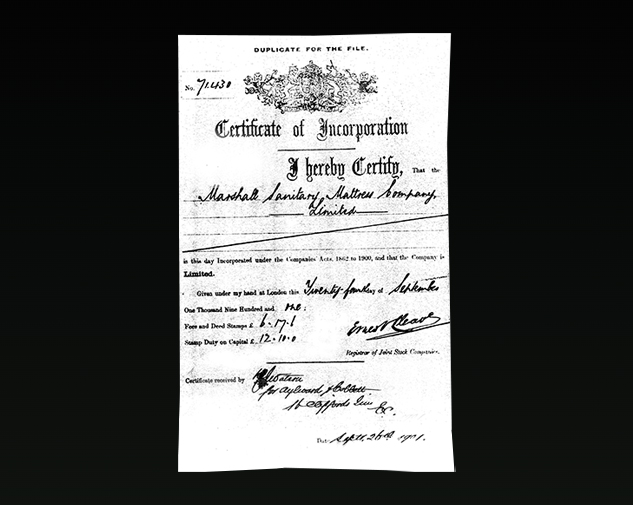 DUPLICATE FOR THE FILE.
No. 71430
Certificate of Incorporation
I hereby Certify, That the
Marshall Sanitary Mattress Company,
Limited
is this day Incorporated under the Companies' Acts, 1862 to 1900, and that the Company is
Limited.
Given under my hand at London this Twenty fourth day of September
One Thousand Nine Hundred and one:
Fees and Deed Stamps £ 6.17.6
Stamp Duty on Capital £ 12.10.0
Ernest Cleave
Registrar of Joint Stock Companies.
Certificate received by Watson
for Aylward &
Inn
Date Sept 26th 1901.